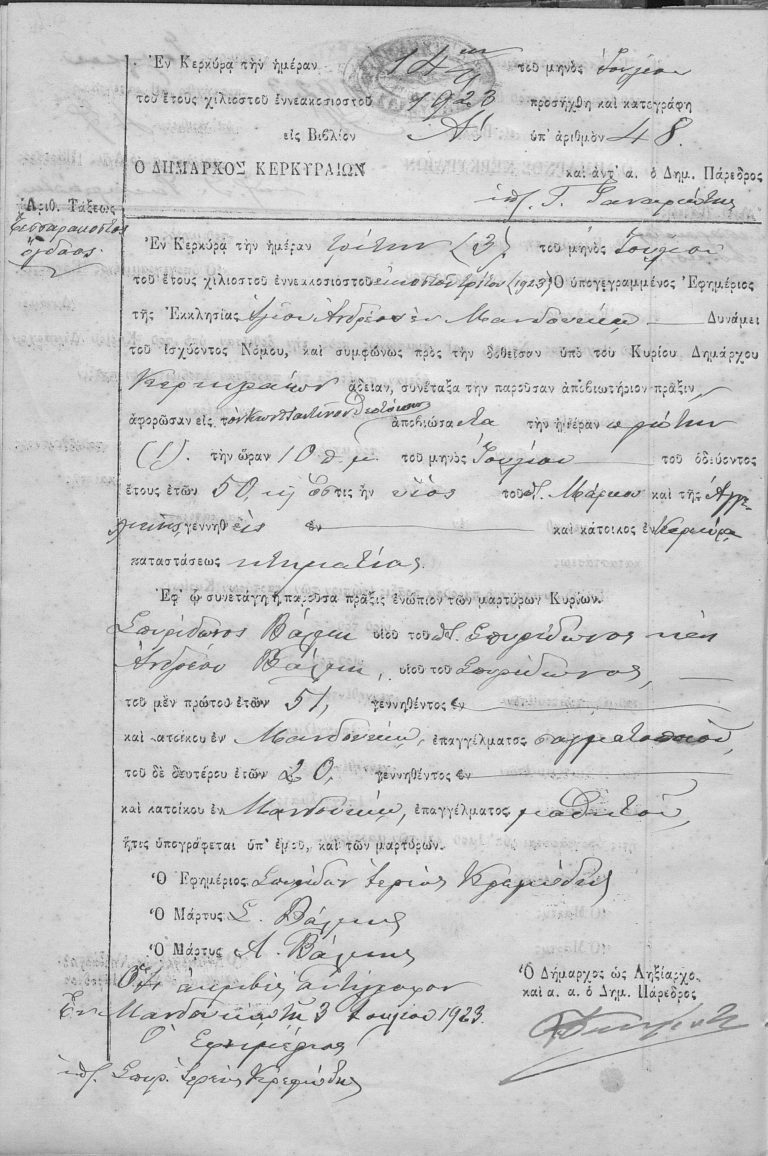 Ἐν Κερκύρᾳ τὴν ἡμέραν 14ην τοῦ μηνὸς Ἰουλίου
τοῦ ἔτους χιλιοστοῦ ἐννεακοσιοστοῦ 1923 προσήχθη καὶ κατεγράφη
εἰς Βιβλίον Α' ὑπ' ἀριθμὸν 48.
Ὁ ΔΗΜΑΡΧΟΣ ΚΕΡΚΥΡΑΙΩΝ καὶ ἀντ' α. ὁ Δημ. Πάρεδρος
ὑπ. Γ.
Ἀριθ. Τάξεως
τεσσαρακοστὸς
ὄγδοος
Ἐν Κερκύρᾳ τὴν ἡμέραν τρίτην (3) τοῦ μηνὸς Ἰουλίου
τοῦ ἔτους χιλιοστοῦ ἐννεακοσιοστοῦ εἰκοστοῦ τρίτου (1923) Ὁ ὑπογεγραμμένος Ἐφημέριος
τῆς Ἐκκλησίας Ἁγίου Ἀνδρέου ἐν Μανδουκίῳ Δυνάμει
τοῦ ἰσχύοντος Νόμου, καὶ συμφώνως πρὸς τὴν δοθεῖσαν ὑπὸ τοῦ Κυρίου Δημάρχου
Κερκυραίων ἄδειαν, συνέταξα τὴν παροῦσαν ἀποβιωτήριον πρᾶξιν,
ἀφορῶσαν εἰς τὸν Κωνσταντῖνον Θεοτόκην ἀποβιώσαντα τὴν ἡμέραν πρώτην
(1). τὴν ὥραν 10 π.μ. τοῦ μηνὸς Ἰουλίου τοῦ ὁδεύοντος
ἔτους ἐτῶν 50, κ ὅστις ἦν υἱὸς τοῦ π. Μάρκου καὶ τῆς Ἀγγε-
λικῆς, γεννηθεὶς ἐν καὶ κάτοικος ἐν Κερκύρᾳ,
καταστάσεως κτηματίας.
Ἐφ' ᾧ συνετάγη ἡ παροῦσα πρᾶξις ἐνώπιον τῶν μαρτύρων Κυρίων.
Σπυρίδωνος Βάλμη υἱοῦ τοῦ π. Σπυρίδωνος καὶ
Ἀνδρέου Βάλμη, υἱοῦ τοῦ Σπυρίδωνος,
τοῦ μὲν πρώτου ἐτῶν 51, γεννηθέντος ἐν
καὶ κατοίκου ἐν Μανδουκίῳ, ἐπαγγέλματος σαγματοποιοῦ,
τοῦ δὲ δευτέρου ἐτῶν 20, γεννηθέντος ἐν
καὶ κατοίκου ἐν Μανδουκίῳ, ἐπαγγέλματος μαθητοῦ,
ἥτις ὑπογράφεται ὑπ' ἐμοῦ, καὶ τῶν μαρτύρων.
Ὁ Ἐφημέριος Σπυρίδων ἱερεὺς
Ὁ Μάρτυς Σ. Βάλμης
Ὁ Μάρτυς Α. Βάλμης
Ὅτι ἀκριβὲς ἀντίγραφον
Ἐν Μανδουκίῳ τῇ 3 Ἰουλίου 1923.
Ὁ Ἐφημέριος
ὑπ. Σπυρ. ἱερεὺς
Ὁ Δήμαρχος ὡς Ληξίαρχο.
καὶ α. α. ὁ Δημ. Πάρεδρος